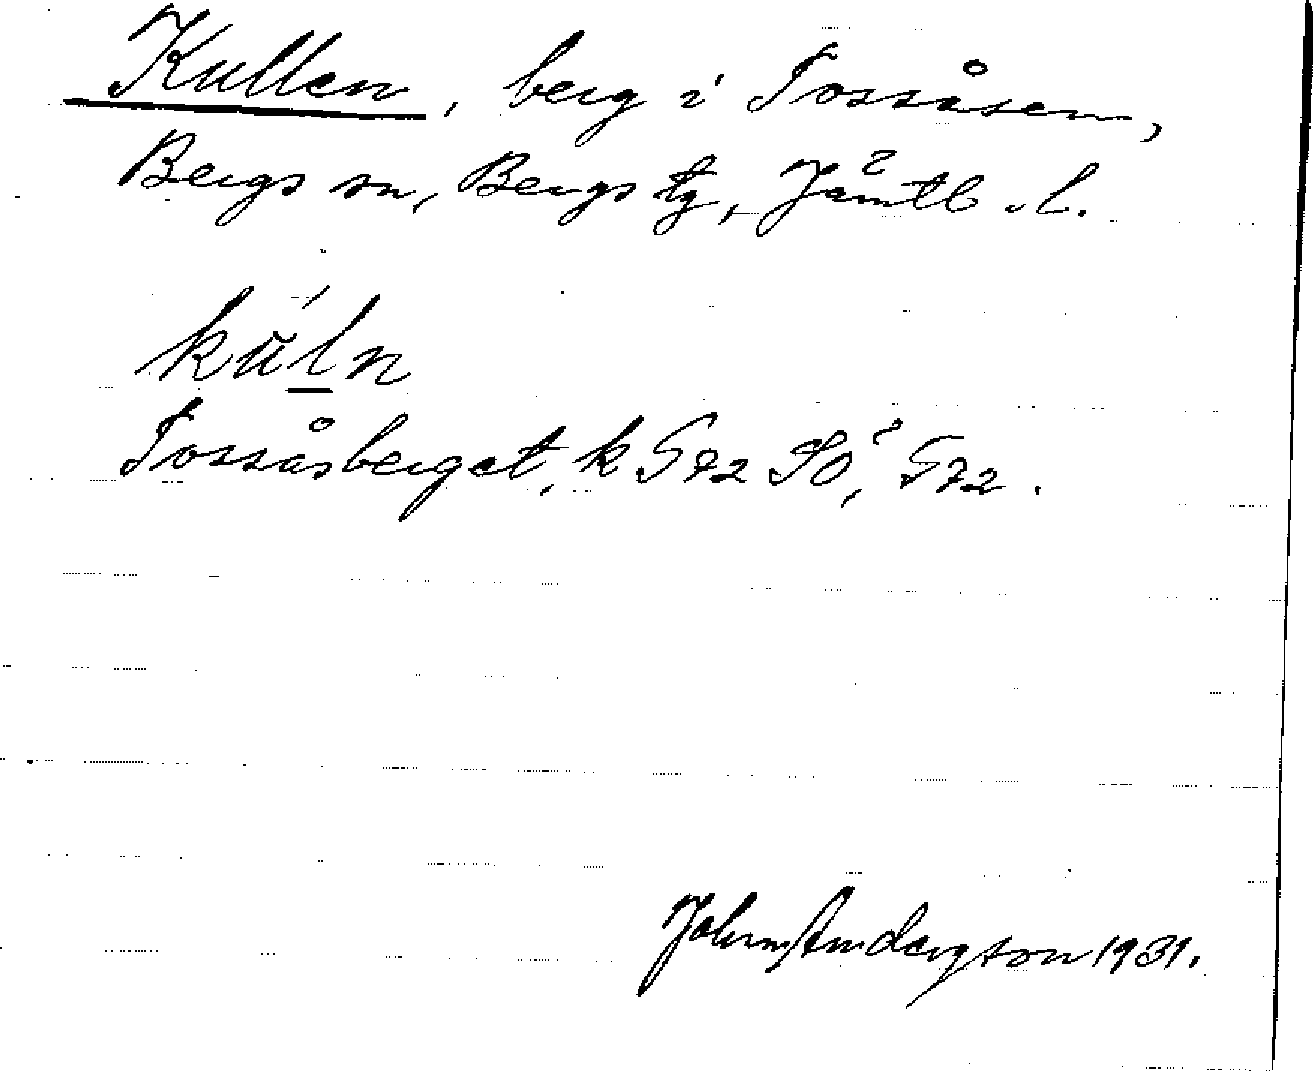 Kullen, berg i Tossåsen,
Bergs sn, Bergs tg, Jämtl. l.
kuln
Tossåsberget, k G72 SO, G72.
John Anderson 1931.